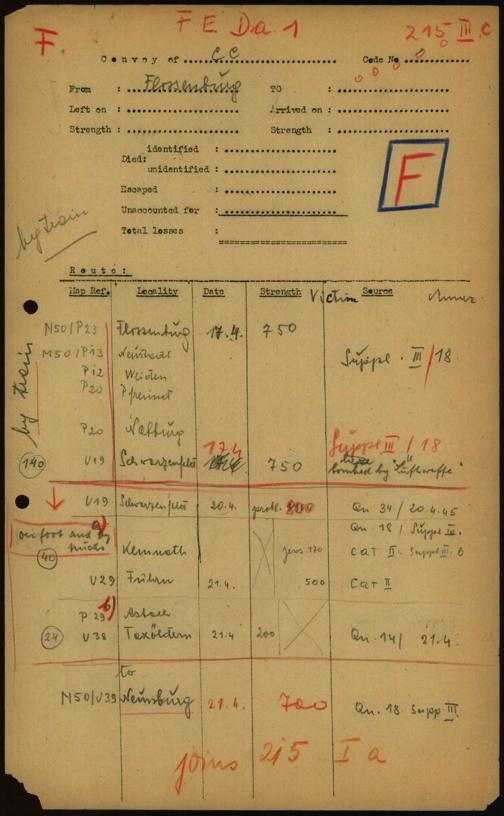 F. F E Da. 1 215 III.c
Convoy of C C Code No
From : Flossenburg TO :
Left on : Arrived on :
Strength : Strength :
identified :
Died:
unidentified :
Escaped :
Unaccounted for :
Total losses :
F
by train
Route:
Map Ref. Locality Date Strength Victim Source
N50/P23 Flossenburg 17.4. 750
M50/P13 Suppl. III/18.
by train
P12 Weiden
P20 Pfreimd
P20 Nabburg
17.4 Suppl III / 18
140 U19 Schwarzenfeld 750 bombed by "Luftwaffe"
U19 Schwarzenfeld 20.4. Qu 34 / 20.4.45
a) Qu 18 / Suppl III.
on foot and by trucks
40 Kemnath 170 CAT II. Suppl III. 6
U29 Fuhrn 21.4. 500 CAT II
b)
P29 Asbach
24 U38 Taxöldern 21.4 200 Qu. 14/ 21.4.
to
M50/U39 Neunburg 21.4. 700 Qu. 18. Supp III.
joins 215 I a